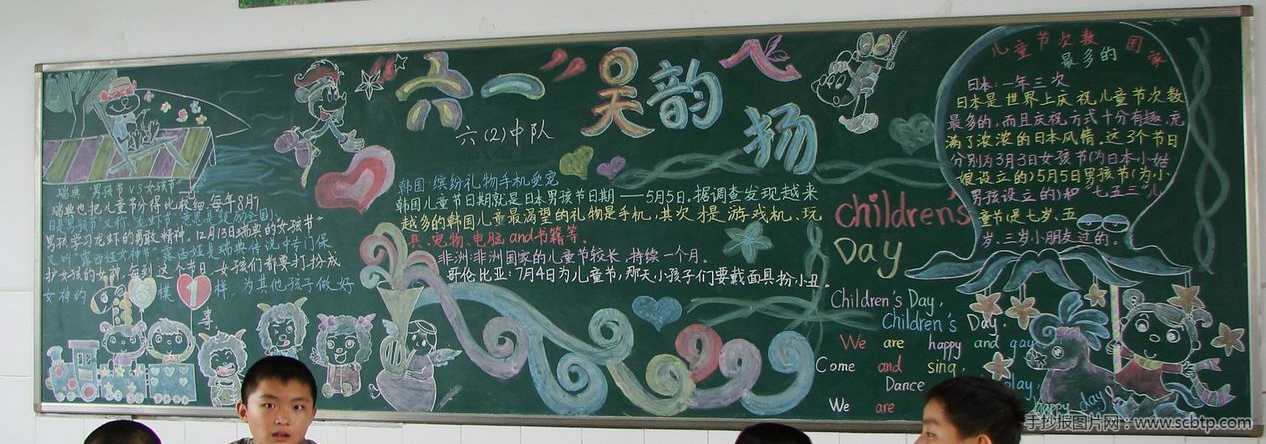 六一“吴韵飞扬
六(2)中队
瑞典：男孩节VS女孩节
瑞典也把儿童节分得比较细，每年8月7
男孩学习龙虾的勇敢精神。12月13日瑞典的女孩节
护女孩的女神，每到这个节日，女孩们都要打扮成
女神的模样，为其他孩子做好
事。
6 1
韩国：缤纷礼物手机受宠
韩国儿童节日期就是日本男孩节日期——5月5日。据调查发现越来
越多的韩国儿童最渴望的礼物是手机，其次才是游戏机、玩
具、宠物、电脑and书籍等。
非洲：非洲国家的儿童节较长，持续一个月。
哥伦比亚：7月4日为儿童节，那天，小孩子们要戴面具扮小丑。
children's
Day
Children's Day,
Children's Day.
We are happy and gay
Come and sing,
Dance play,
We are happy day
儿童节次数
最多的国家
日本：一年三次
日本是世界上庆祝儿童节次数
最多的，而且庆祝方式十分有趣，充
满了浓浓的日本风情。这3个节日
分别为3月3日女孩节(为日本小姑
娘设立的)5月5日男孩节(为小
男孩设立的)和“七五三”儿
童节(是七岁、五
岁、三岁小朋友过的。
手抄报图片网：www.scbtp.com